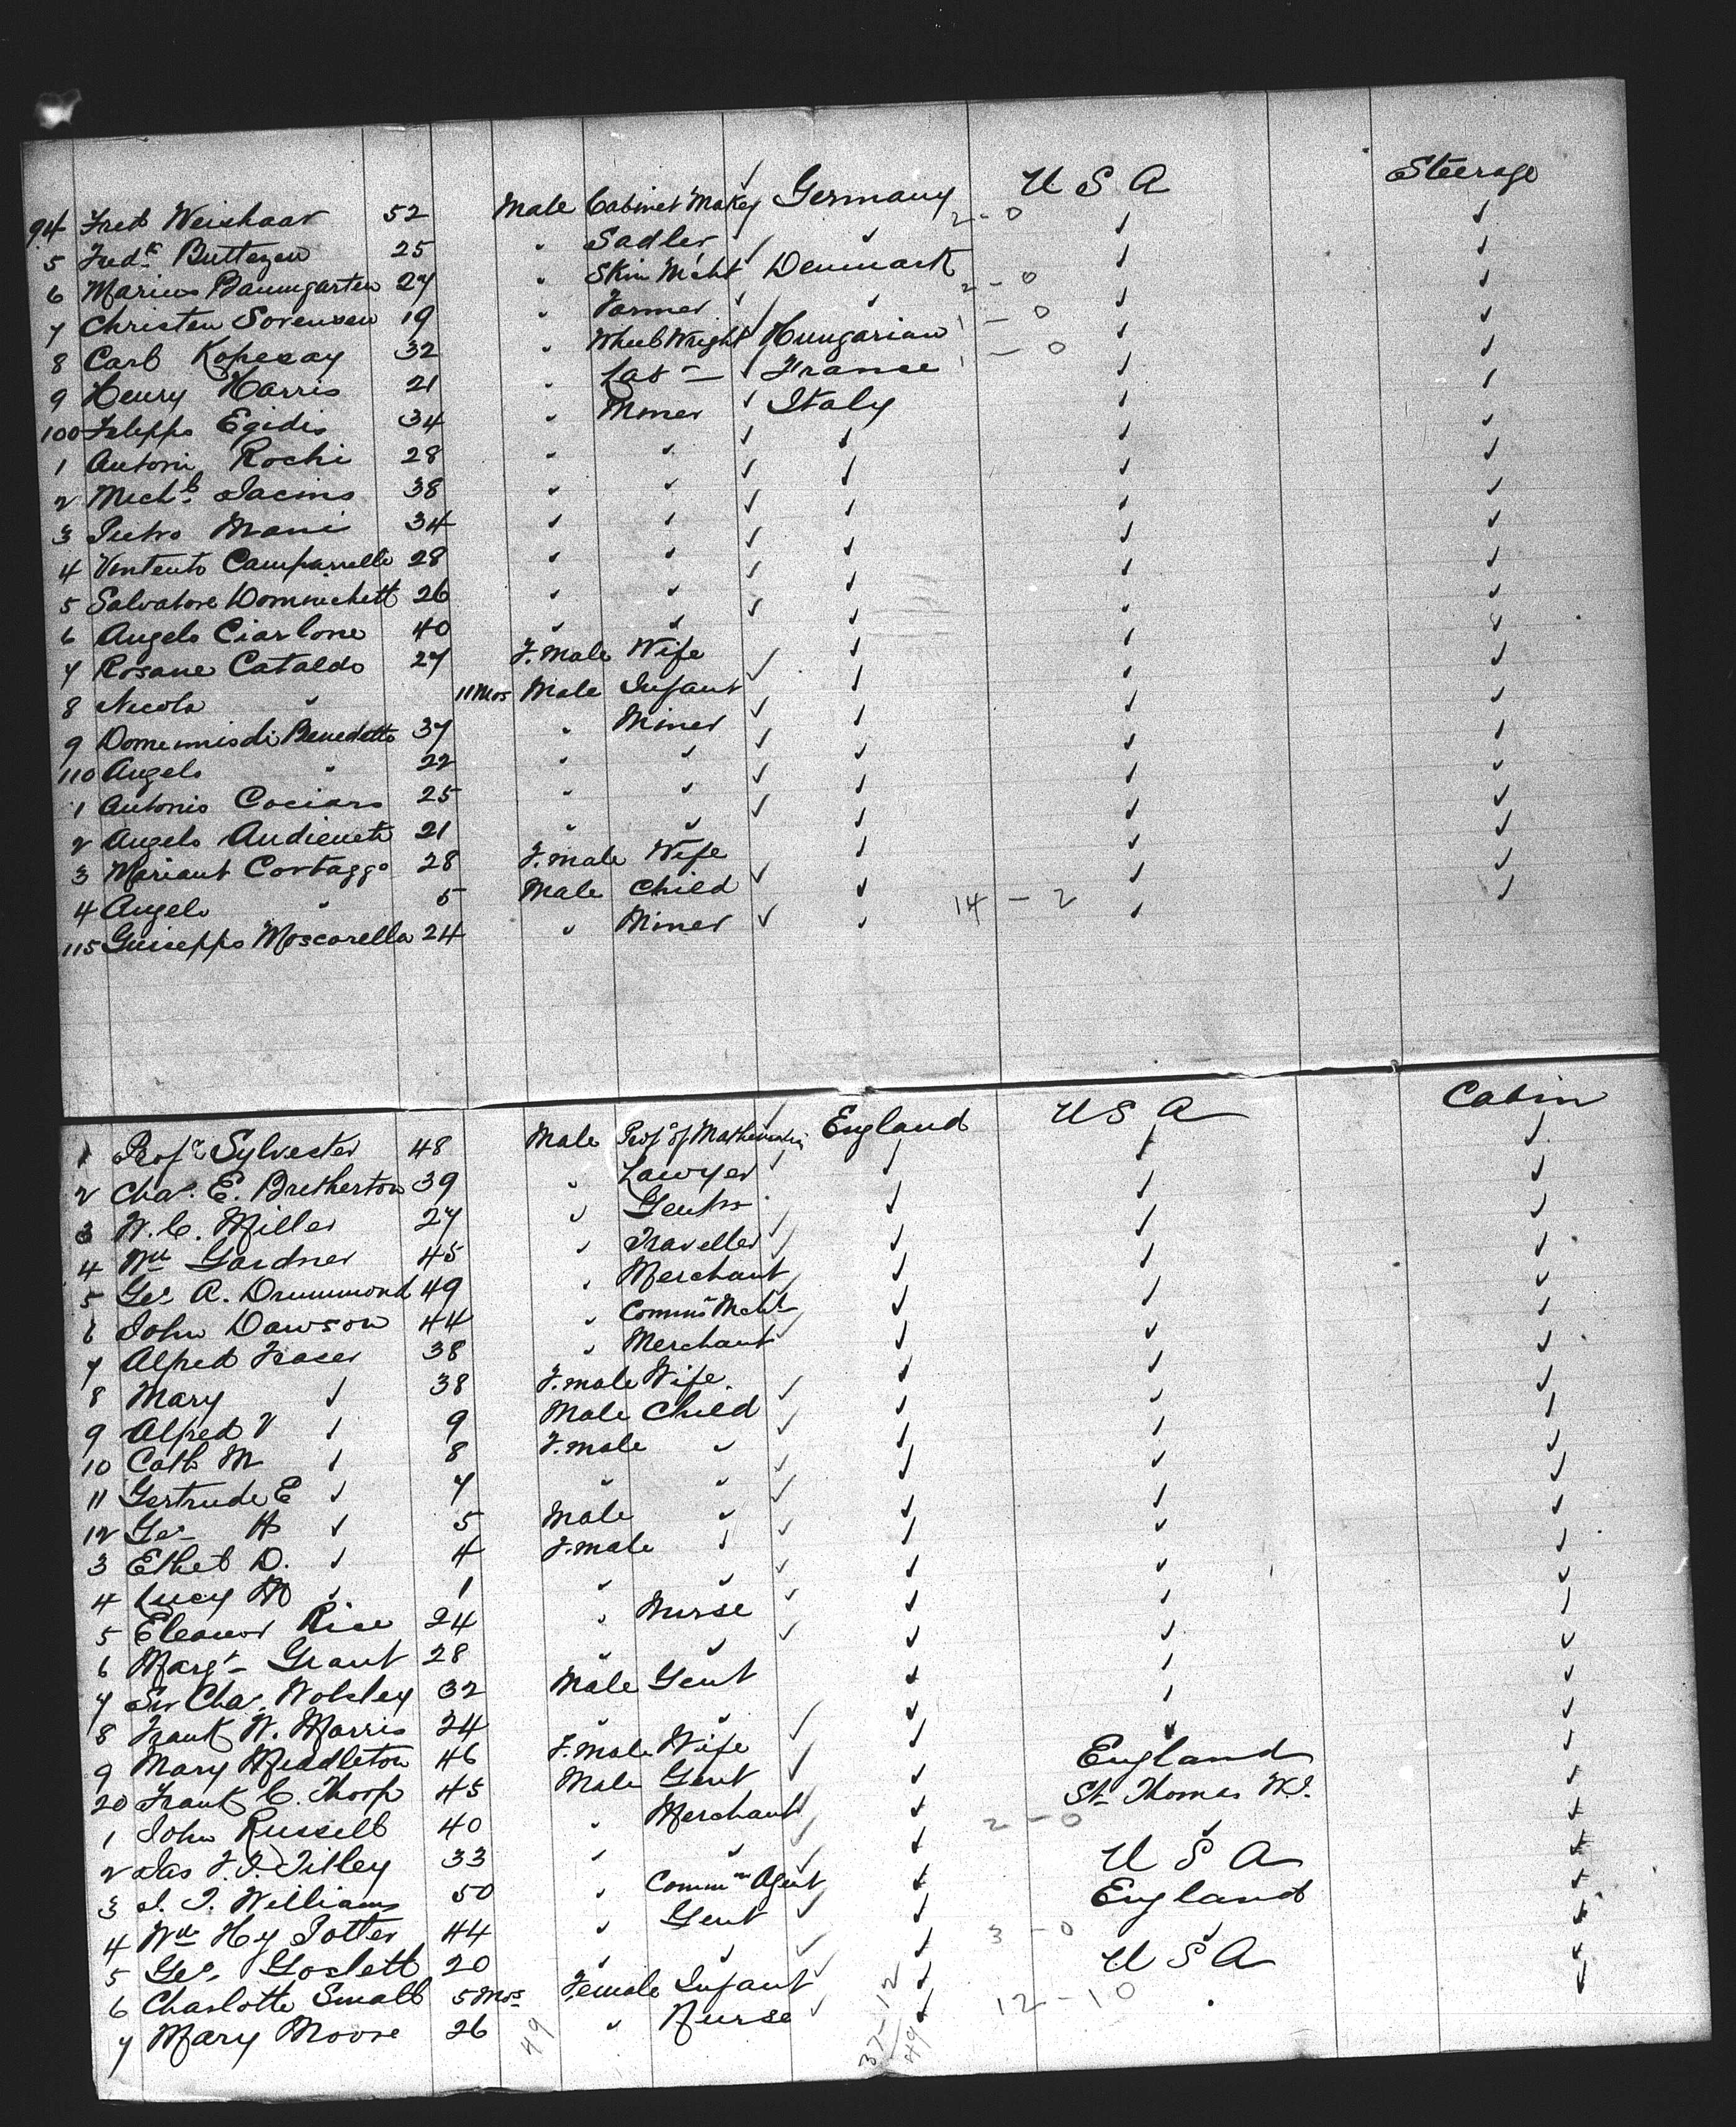 94 Fred Weishaar 52 Male Cabinet Maker Germany U S A Steerage
5 Fredk Buttazen 25 " Sadler ✓ 2-0 ✓ ✓
6 Marius Baumgarten 27 " Skin Mcht Denmark ✓ ✓
7 Christen Sorensen 19 " Farmer ✓ 2-0 ✓ ✓
8 Carl Kopesay 32 " Wheel Wright Hungarian 1-0 ✓ ✓
9 Henry Harris 21 " Labr France 1-0 ✓ ✓
100 Felippo Egidio 34 " Miner Italy ✓ ✓
1 Antoni Rochi 28 " " ✓ ✓ ✓
2 Mechl Iacins 38 " " ✓ ✓ ✓
3 Pietro Mani 34 " " ✓ ✓ ✓
4 Ventento Campanello 28 " " ✓ ✓ ✓
5 Salvatore Dominichett 26 " " ✓ ✓ ✓
6 Angelo Ciarlone 40 " " ✓ ✓ ✓
7 Rosane Cataldo 27 F.male Wife ✓ ✓ ✓
8 Nicola " 11 Mos Male Infant ✓ ✓ ✓
9 Domennico di Benedetto 37 " Miner ✓ ✓ ✓
110 Angelo " 22 " " ✓ ✓ ✓
1 Antonio Cociaro 25 " " ✓ ✓ ✓
2 Angelo Audienete 21 " " ✓ ✓ ✓
3 Mariant Cortaggo 28 F.male Wife ✓ ✓ ✓
4 Angelo " 5 Male Child ✓ ✓ ✓
115 Guiseppo Moscarella 24 " Miner ✓ 14-2 ✓ ✓
1 Profr Sylvester 48 Male Profr of Mathematics England U S A Cabin
2 Chas. E. Bretherton 39 " Lawyer ✓ ✓ ✓
3 W. C. Miller 27 " Gentn ✓ ✓ ✓
4 Wm Gardner 45 " Traveller ✓ ✓ ✓
5 Geo A. Drummond 49 " Merchant ✓ ✓ ✓
6 John Dawson 44 " Commn Mcht ✓ ✓ ✓
7 Alfred Fraser 38 " Merchant ✓ ✓ ✓
8 Mary ✓ 38 F.male Wife ✓ ✓ ✓
9 Alfred V ✓ 9 Male Child ✓ ✓ ✓
10 Cath M ✓ 8 F.male " ✓ ✓ ✓
11 Gertrude E ✓ 7 " " ✓ ✓ ✓
12 Geo H ✓ 5 Male " ✓ ✓ ✓
3 Ethel D. ✓ 4 F.male " ✓ ✓ ✓
4 Lucy M ✓ 1 " " ✓ ✓ ✓
5 Eleanor Rice 24 " Nurse ✓ ✓ ✓
6 Margt Grant 28 " " ✓ ✓ ✓
7 Sir Chas. Wolsley 32 Male Gent ✓ ✓ ✓
8 Frank W. Morris 24 " " ✓ ✓ ✓
9 Mary Meddleton 46 F.male Wife ✓ ✓ ✓
20 Frank C. Thorp 45 Male Gent ✓ England ✓
1 John Russell 40 " Merchant ✓ St Thomas W.I. ✓
2 Jas F. J. Tilley 33 " " ✓ 2-0 ✓ ✓
3 J. J. Williams 50 " Commn Agent ✓ U S A ✓
4 Wm Hy Potter 44 " Gent ✓ England ✓
5 Geo. Goslett 20 " " ✓ 3-0 ✓ ✓
6 Charlotte Small 5 Mos Female Infant ✓ U S A ✓
7 Mary Moore 26 " Nurse ✓ 12-10
49 37-12 49